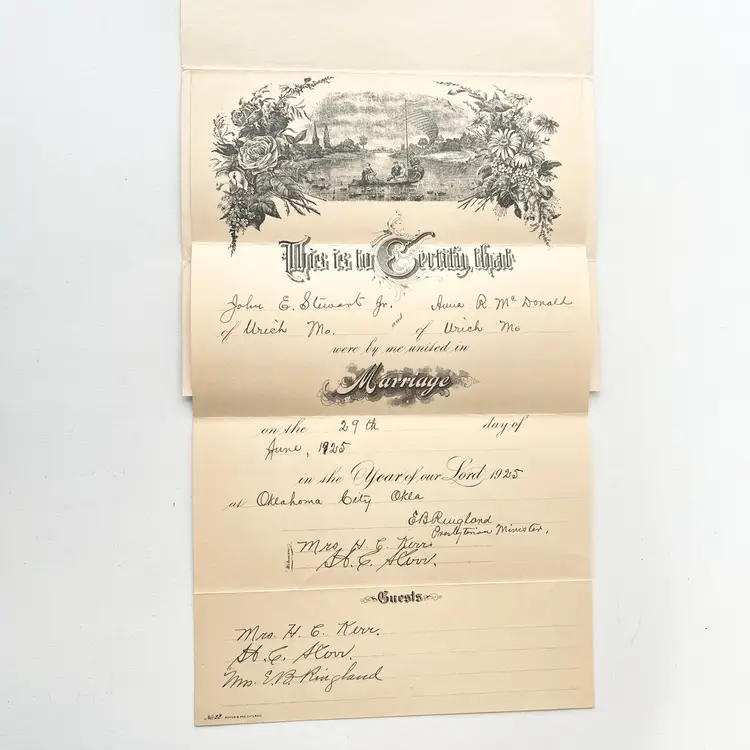 This is to Certify, that
John E. Stewart Jr. and Anna R. McDonald
of Urich Mo. of Urich Mo
were by me united in
Marriage
on the 29th day of
June, 1925
in the Year of our Lord 1925
at Oklahoma City Okla
E B Ringland
Presbyterian Minister.
Mrs. H. C. Kerr.
H. C.
Guests
Mrs. H. C. Kerr.
H. C.
Mrs. E. B. Ringland
No. 22.